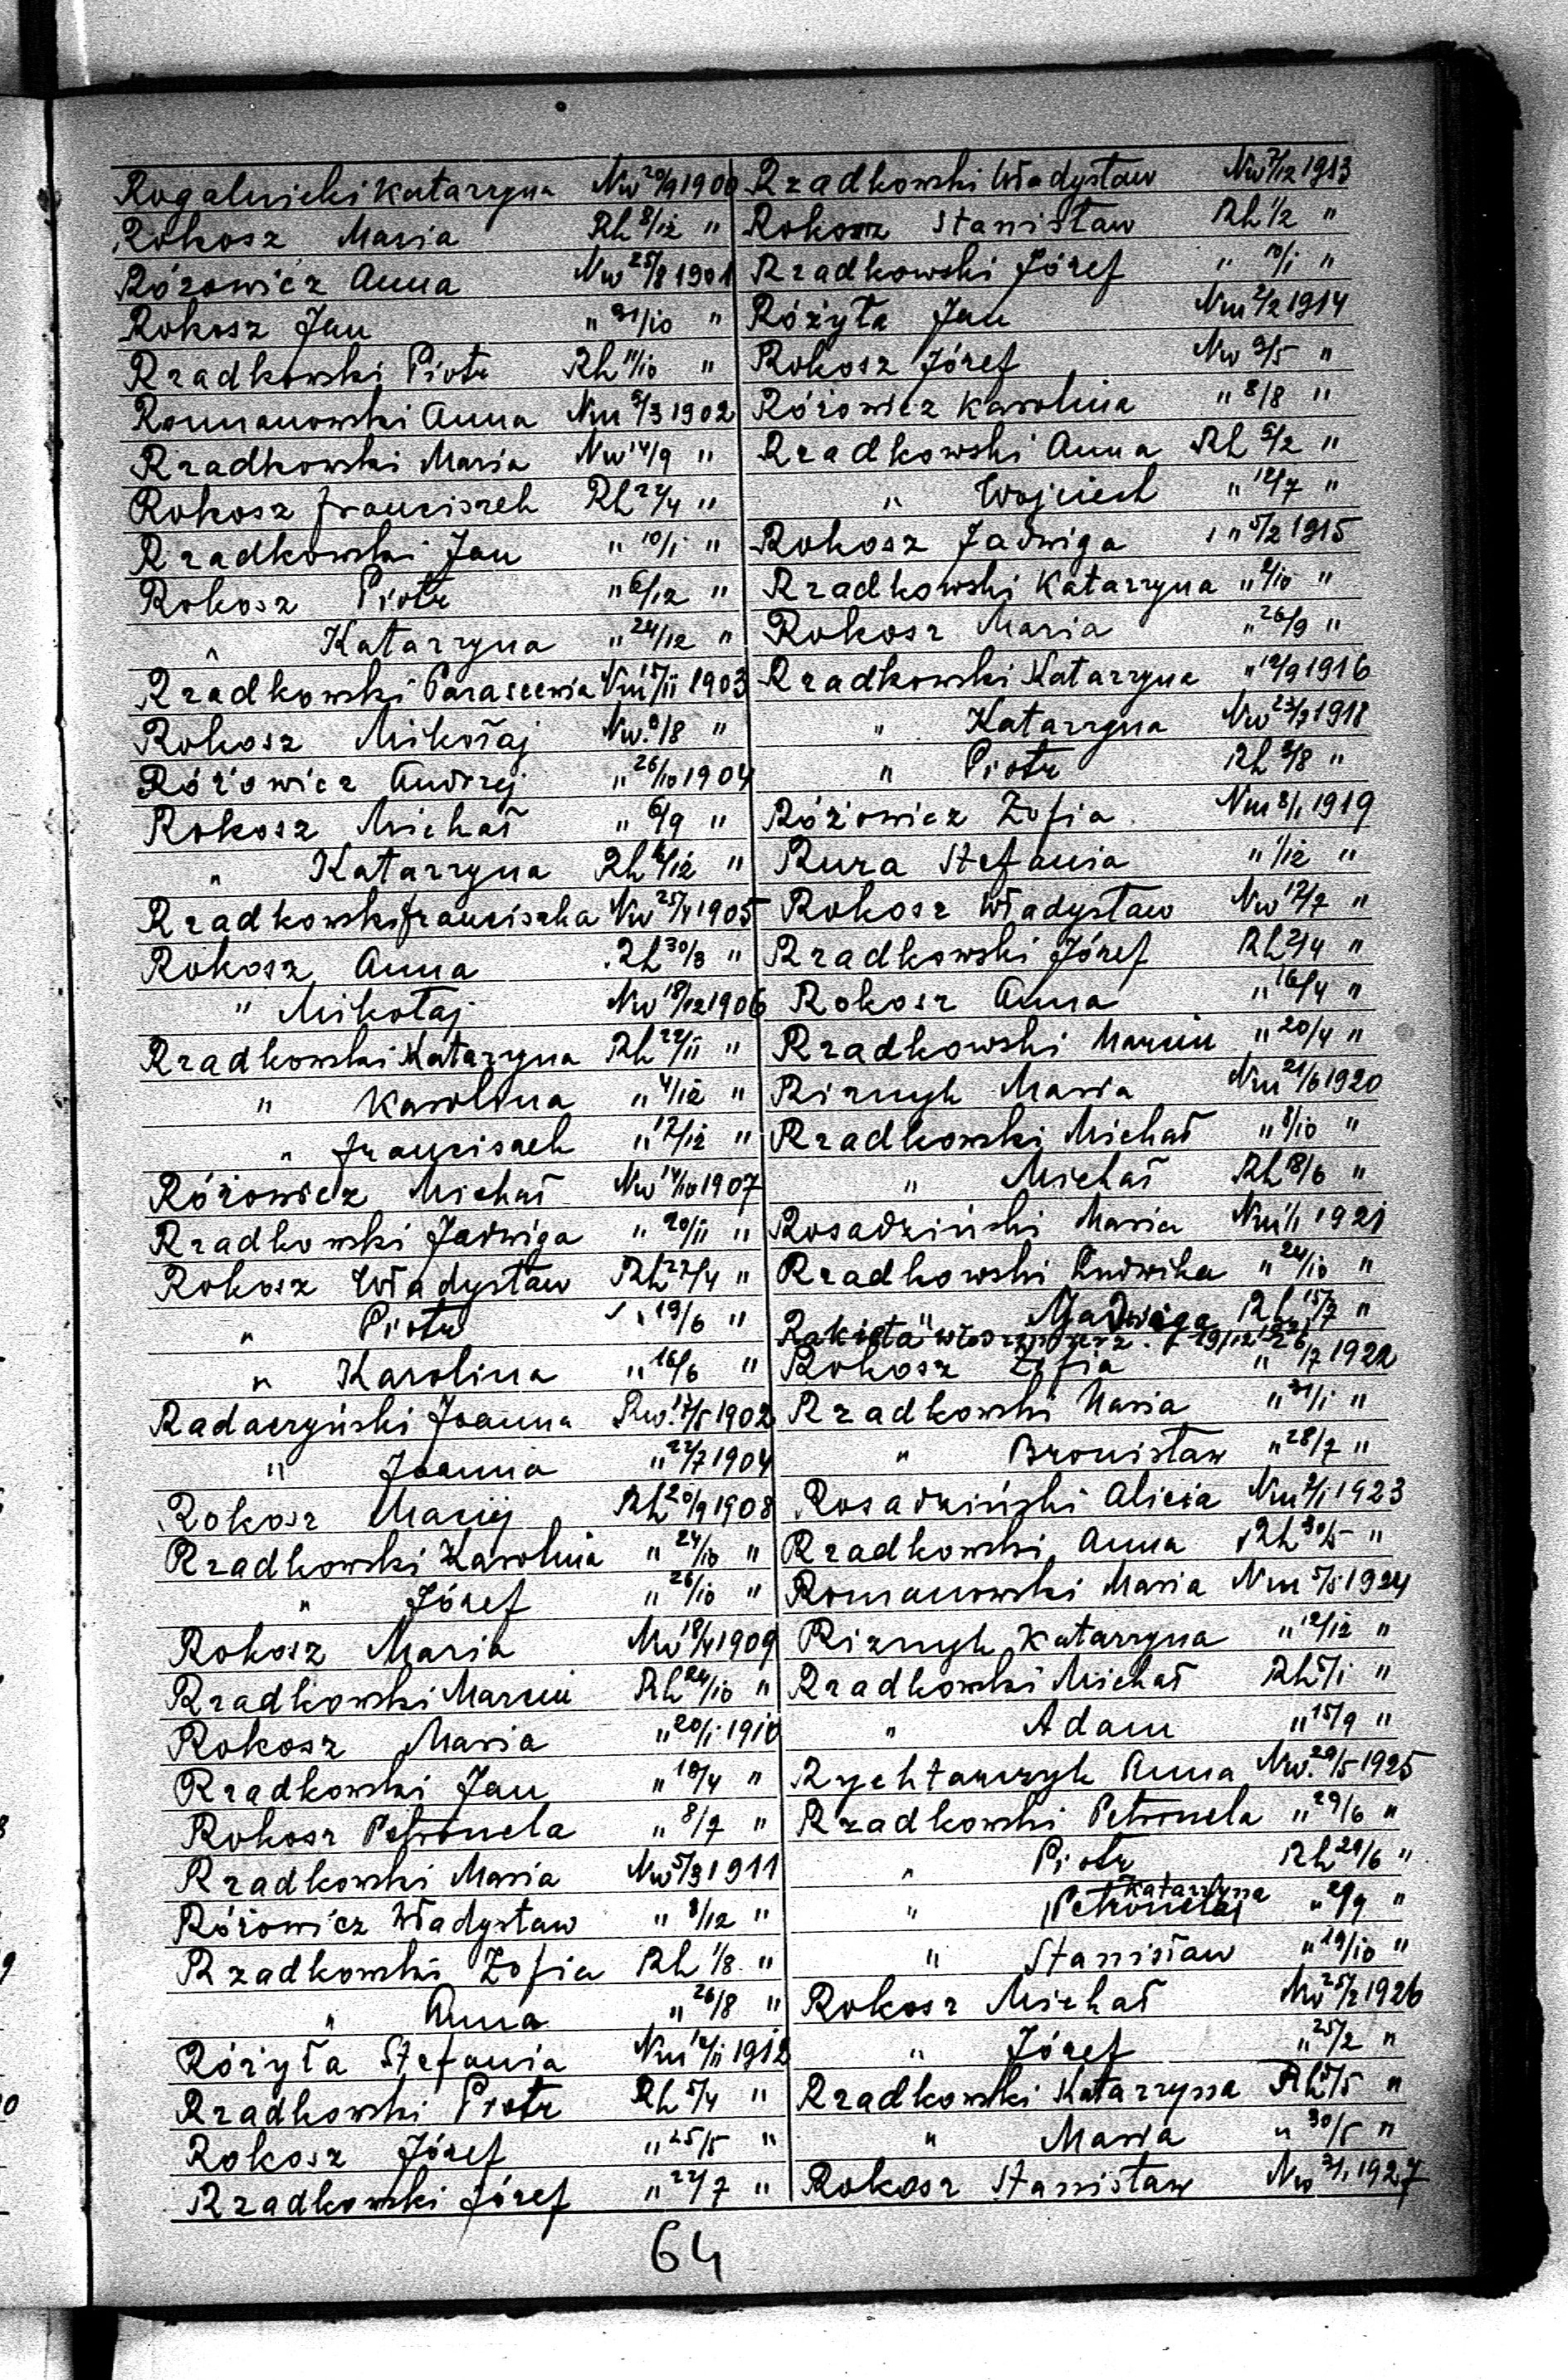 Rogalnicki Katarzyna Nw 20/9 1900
Rokosz Maria Rh 8/12 "
Rózowicz Anna Nw 25/8 1901
Rokosz Jan " 31/10 "
Rzadkowski Piotr Rh 11/10 "
Romanowski Anna Nm 5/3 1902
Rzadkowski Maria Nw 14/9 "
Rokosz Franciszek Rh 22/4 "
Rzadkowski Jan " 10/1 "
Rokosz Piotr " 6/12 "
" Katarzyna " 24/12 "
Rzadkowski Parascewia Nm 15/11 1903
Rokosz Mikołaj Nw. /8 "
Różowicz Andrzej " 26/10 1904
Rokosz Michał " 6/9 "
" Katarzyna Rh /12 "
Rzadkowski Franciszka Nw 25/ 1905
Rokosz Anna Rh 30/3 "
" Mikołaj Nw 18/12 1906
Rzadkowski Katarzyna Rh 22/11 "
" Karolina " 4/12 "
" Franciszek " 17/12 "
Różowicz Michał Nw 14/10 1907
Rzadkowski Jadwiga " 20/11 "
Rokosz Władysław Rh 22/4 "
" Piotr " 19/6 "
" Karolina " 16/6 "
Radaczyński Joanna Rw. 17/5 1902
" Joanna " 22/7 1904
Rokosz Maciej Rh 20/9 1908
Rzadkowski Karolina " 24/10 "
" Józef " 26/10 "
Rokosz Maria Nw 18/4 1909
Rzadkowski Marcin Rh 24/10 "
Rokosz Maria " 20/1 1910
Rzadkowski Jan " 18/4 "
Rokosz Petronela " 8/7 "
Rzadkowski Maria Nw 5/3 1911
Różowicz Władysław " 8/12 "
Rzadkowski Zofia Rh 1/8 "
" Anna " 26/8 "
Różyła Stefania Nm 12/11 1912
Rzadkowski Piotr Rh 5/4 "
Rokosz Józef " 25/5 "
Rzadkowski Józef " 22/7 "
Rzadkowski Władysław Nw 7/12 1913
Rokosz Stanisław Rh 1/2 "
Rzadkowski Józef " 10/1 "
Różyła Jan Nm 2/2 1914
Rokosz Józef Nw 3/5 "
Różowicz Karolina " 8/8 "
Rzadkowski Anna Rh 5/2 "
" Wojciech " 12/7 "
Rokosz Jadwiga " 5/2 1915
Rzadkowski Katarzyna " /10 "
Rokosz Maria " 26/9 "
Rzadkowski Katarzyna " 12/9 1916
" Katarzyna Nw 23/7 1918
" Piotr Rh /8 "
Różowicz Zofia Nm 8/1 1919
Rura Stefania " 1/12 "
Rokosz Władysław Nw 12/7 "
Rzadkowski Józef Rh 2/4 "
Rokosz Anna " 16/4 "
Rzadkowski Marcin " 20/4 "
Riznyk Maria Nm 21/6 1920
Rzadkowski Michał " 8/10 "
" Michał Rh 18/6 "
Rosadziński Maria Nm 1/1 1921
Rzadkowski Ludwika " 24/10 "
" Jadwiga Rh 15/7 "
Rakieta Włodzimierz
Rokosz Zofia " /7 1922
Rzadkowski Maria " 31/1 "
" Bronisław " 28/7 "
Rosadziński Alicia Nm 2/1 1923
Rzadkowski Anna Rh 30/5 "
Romanowski Maria Nm 5/5 1924
Riznyk Katarzyna " 12/12 "
Rzadkowski Michał Rh 5/1 "
" Adam " 15/9 "
Rychtarczyk Anna Nw. 29/5 1925
Rzadkowski Petronela " 29/6 "
" Piotr Rh 29/6 "
Katarzyna
" Petronela " 29/9 "
" Stanisław " 19/10 "
Rokosz Michał Nw 25/2 1926
" Józef " 25/2 "
Rzadkowski Katarzyna Rh 5/5 "
" Maria " 30/5 "
Rokosz Stanisław Nw 3/1 1927
64